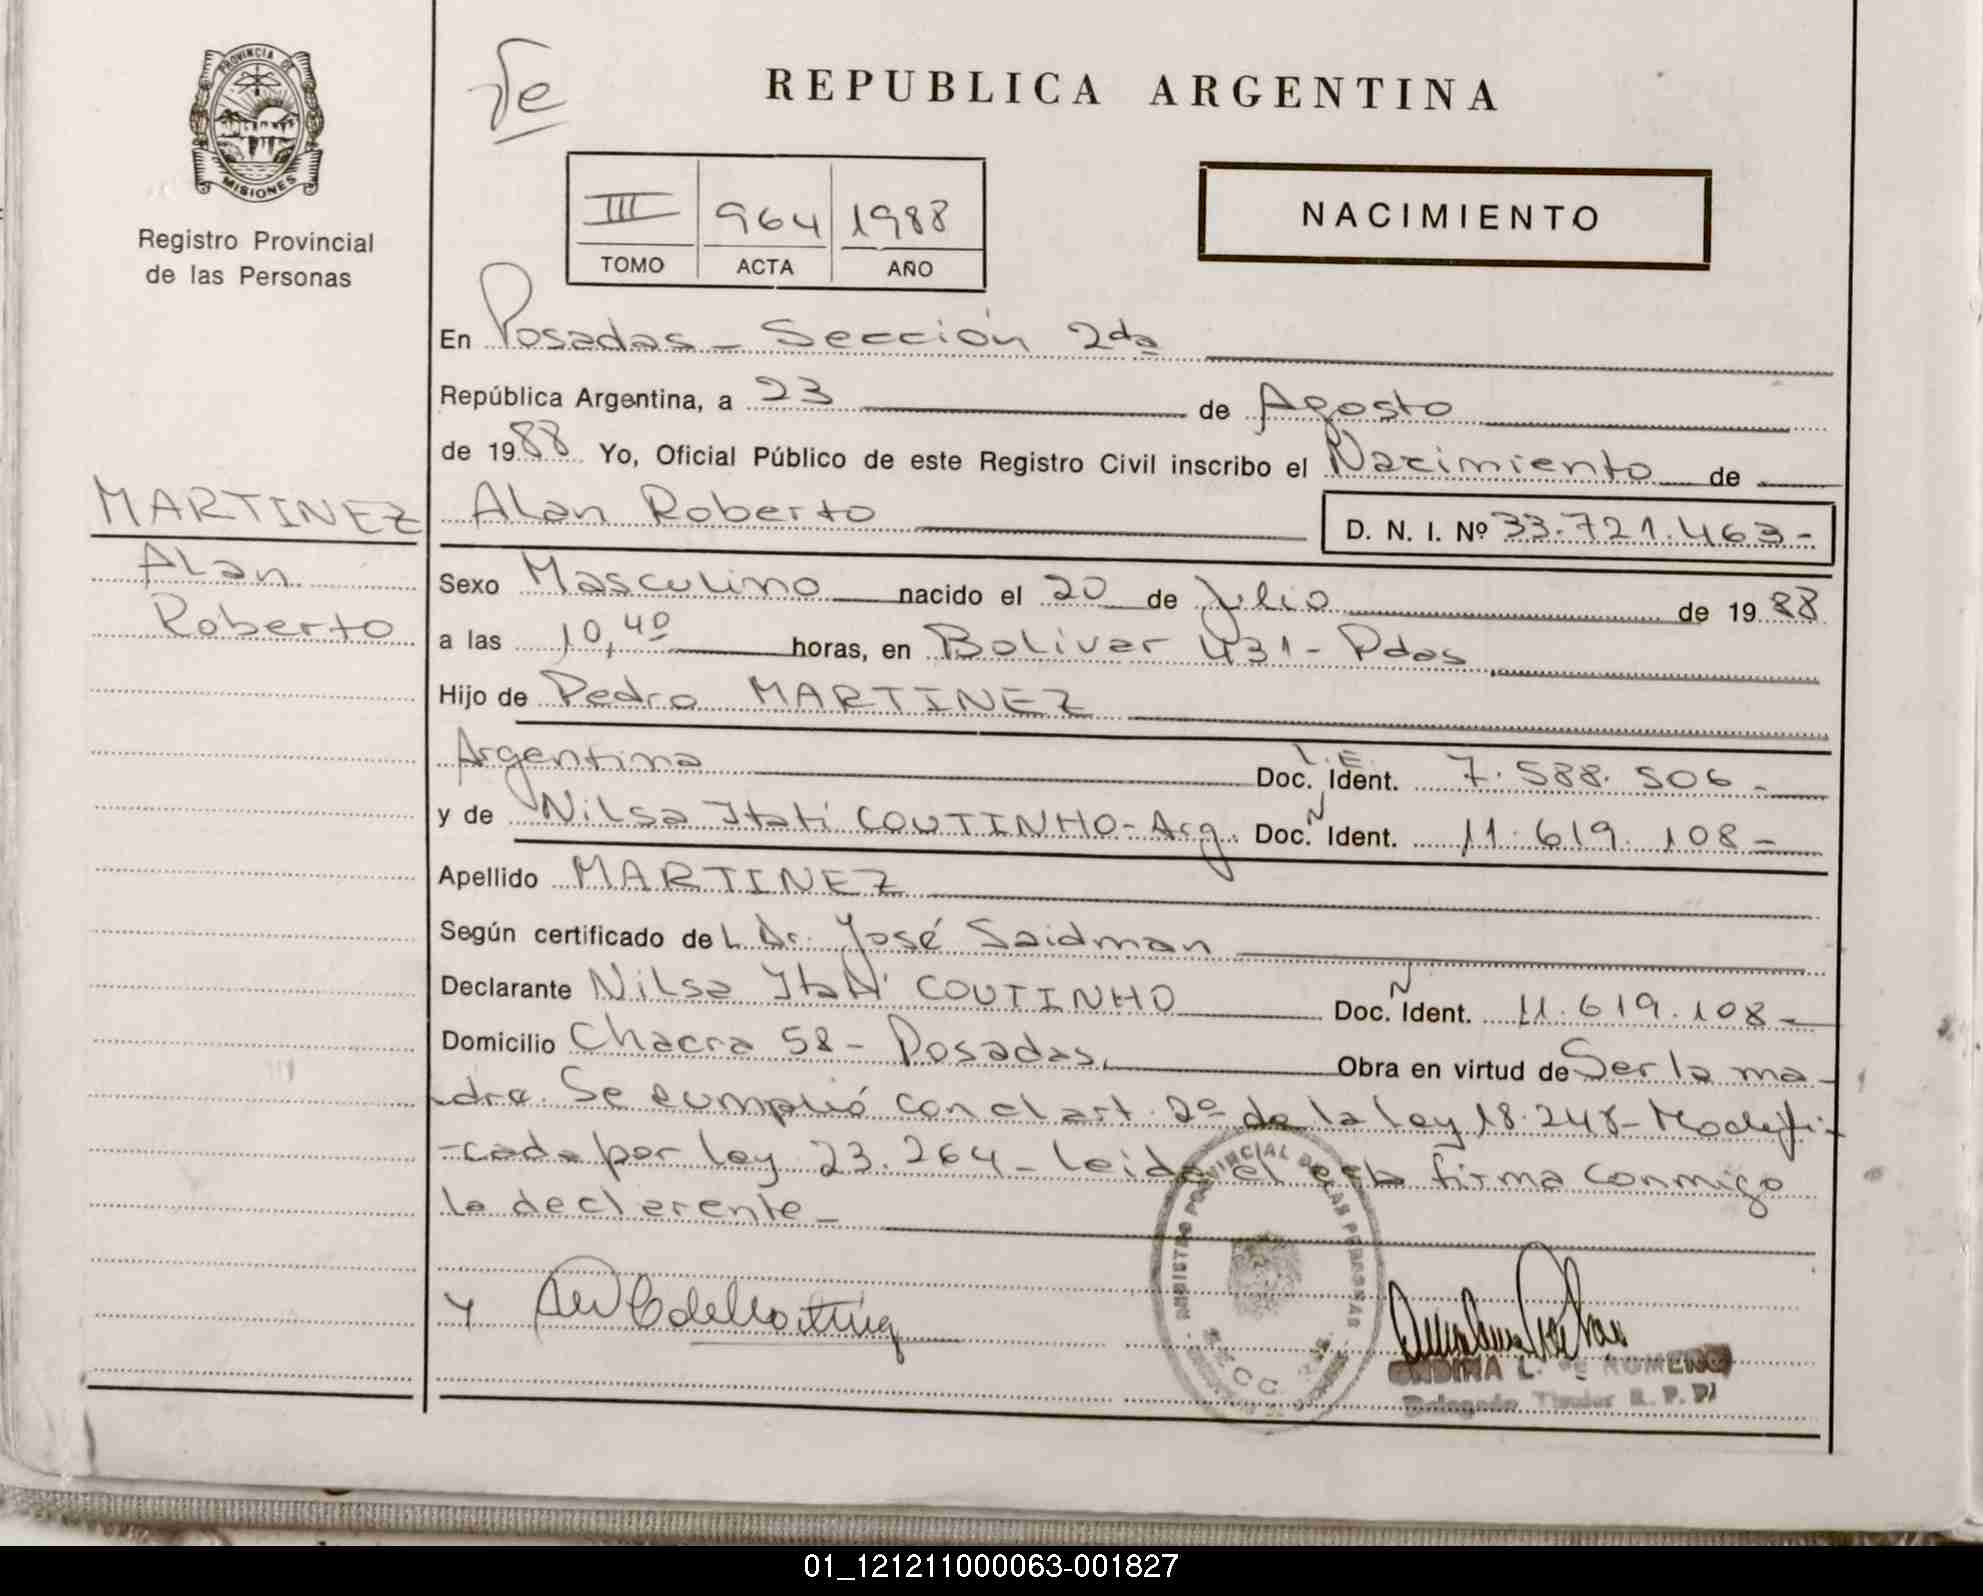 PROVINCIA DE
MISIONES
Registro Provincial
de las Personas
REPUBLICA ARGENTINA
III 964 1988
TOMO ACTA AÑO
NACIMIENTO
En Posadas - Sección 2da
República Argentina, a 23 de Agosto
de 1988 Yo, Oficial Público de este Registro Civil inscribo el Nacimiento de
MARTINEZ
Alan
Roberto
Alan Roberto D. N. I. Nº 33.721.463-
Sexo Masculino nacido el 20 de Julio de 1988
a las 10,40 horas, en Bolivar 431 - Pdas
Hijo de Pedro MARTINEZ
Argentina L.E. Doc. Ident. 7.588.506-
y de Nilsa Itatí COUTINHO - Arg. Doc. N Ident. 11.619.108-
Apellido MARTINEZ
Según certificado del Dr. José Saidman
Declarante Nilsa Itatí COUTINHO Doc. N Ident. 11.619.108-
Domicilio Chacra 58 - Posadas, Obra en virtud de Ser la ma-
dre. Se cumplió con el art. 2º de la ley 18.248 - Modifi-
-cada por ley 23.264 - Leida el acta firma conmigo
la declarente -
ONDINA L. DE ROMERO
Delegado Titular R. P. P.
01_121211000063-001827